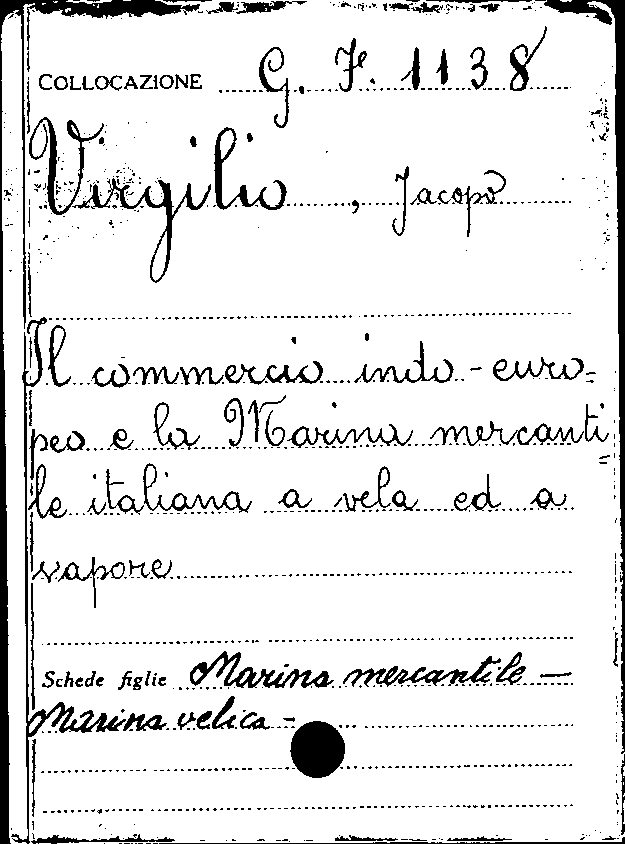 COLLOCAZIONE G. F. 1138
Virgilio, Jacopo
Il commercio indo-euro=
peo e la Marina mercanti=
le italiana a vela ed a
vapore
Schede figlie Marina mercantile —
Marina velica -